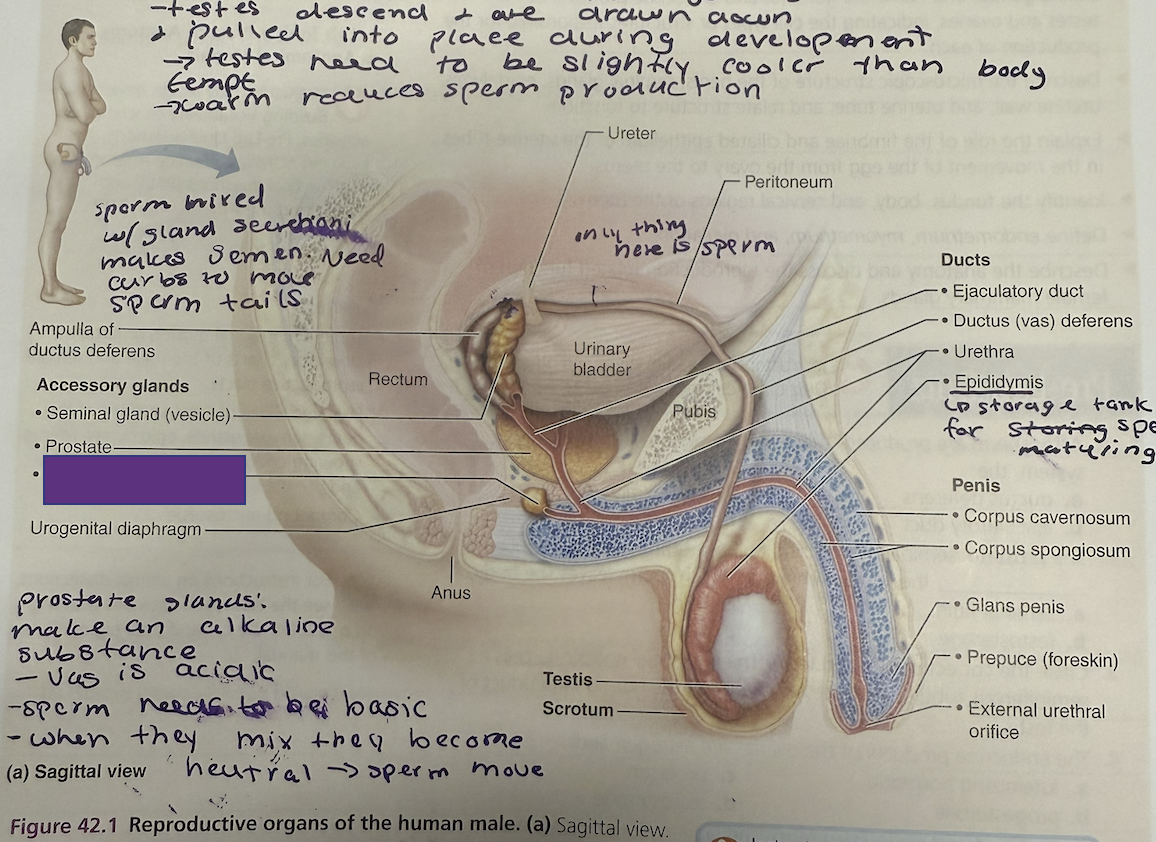 -testes descend & are drawn down
& pulled into place during development
→ testes need to be slightly cooler than body
tempt
→warm reduces sperm production
Ureter
Peritoneum
sperm mixed
w/ gland secretions
makes semen. Need
carbs to move
sperm tails
only thing
here is sperm
Ducts
• Ejaculatory duct
• Ductus (vas) deferens
• Urethra
• Epididymis
↳ storage tank
for storing spe
maturing
Ampulla of
ductus deferens
Accessory glands
• Seminal gland (vesicle)
• Prostate
•
Urogenital diaphragm
Rectum
Urinary
bladder
Pubis
Anus
Penis
• Corpus cavernosum
• Corpus spongiosum
• Glans penis
• Prepuce (foreskin)
• External urethral
orifice
Testis
Scrotum
prostate glands:
make an alkaline
substance
- vas is acidic
-sperm needs to be basic
-when they mix they become
neutral → sperm move
(a) Sagittal view
Figure 42.1 Reproductive organs of the human male. (a) Sagittal view.